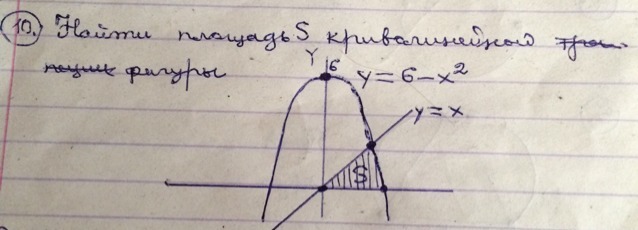 10. Найти площадь S криволинейной тра-
пеции фигуры
Y
6
y = 6 - x²
y = x
S